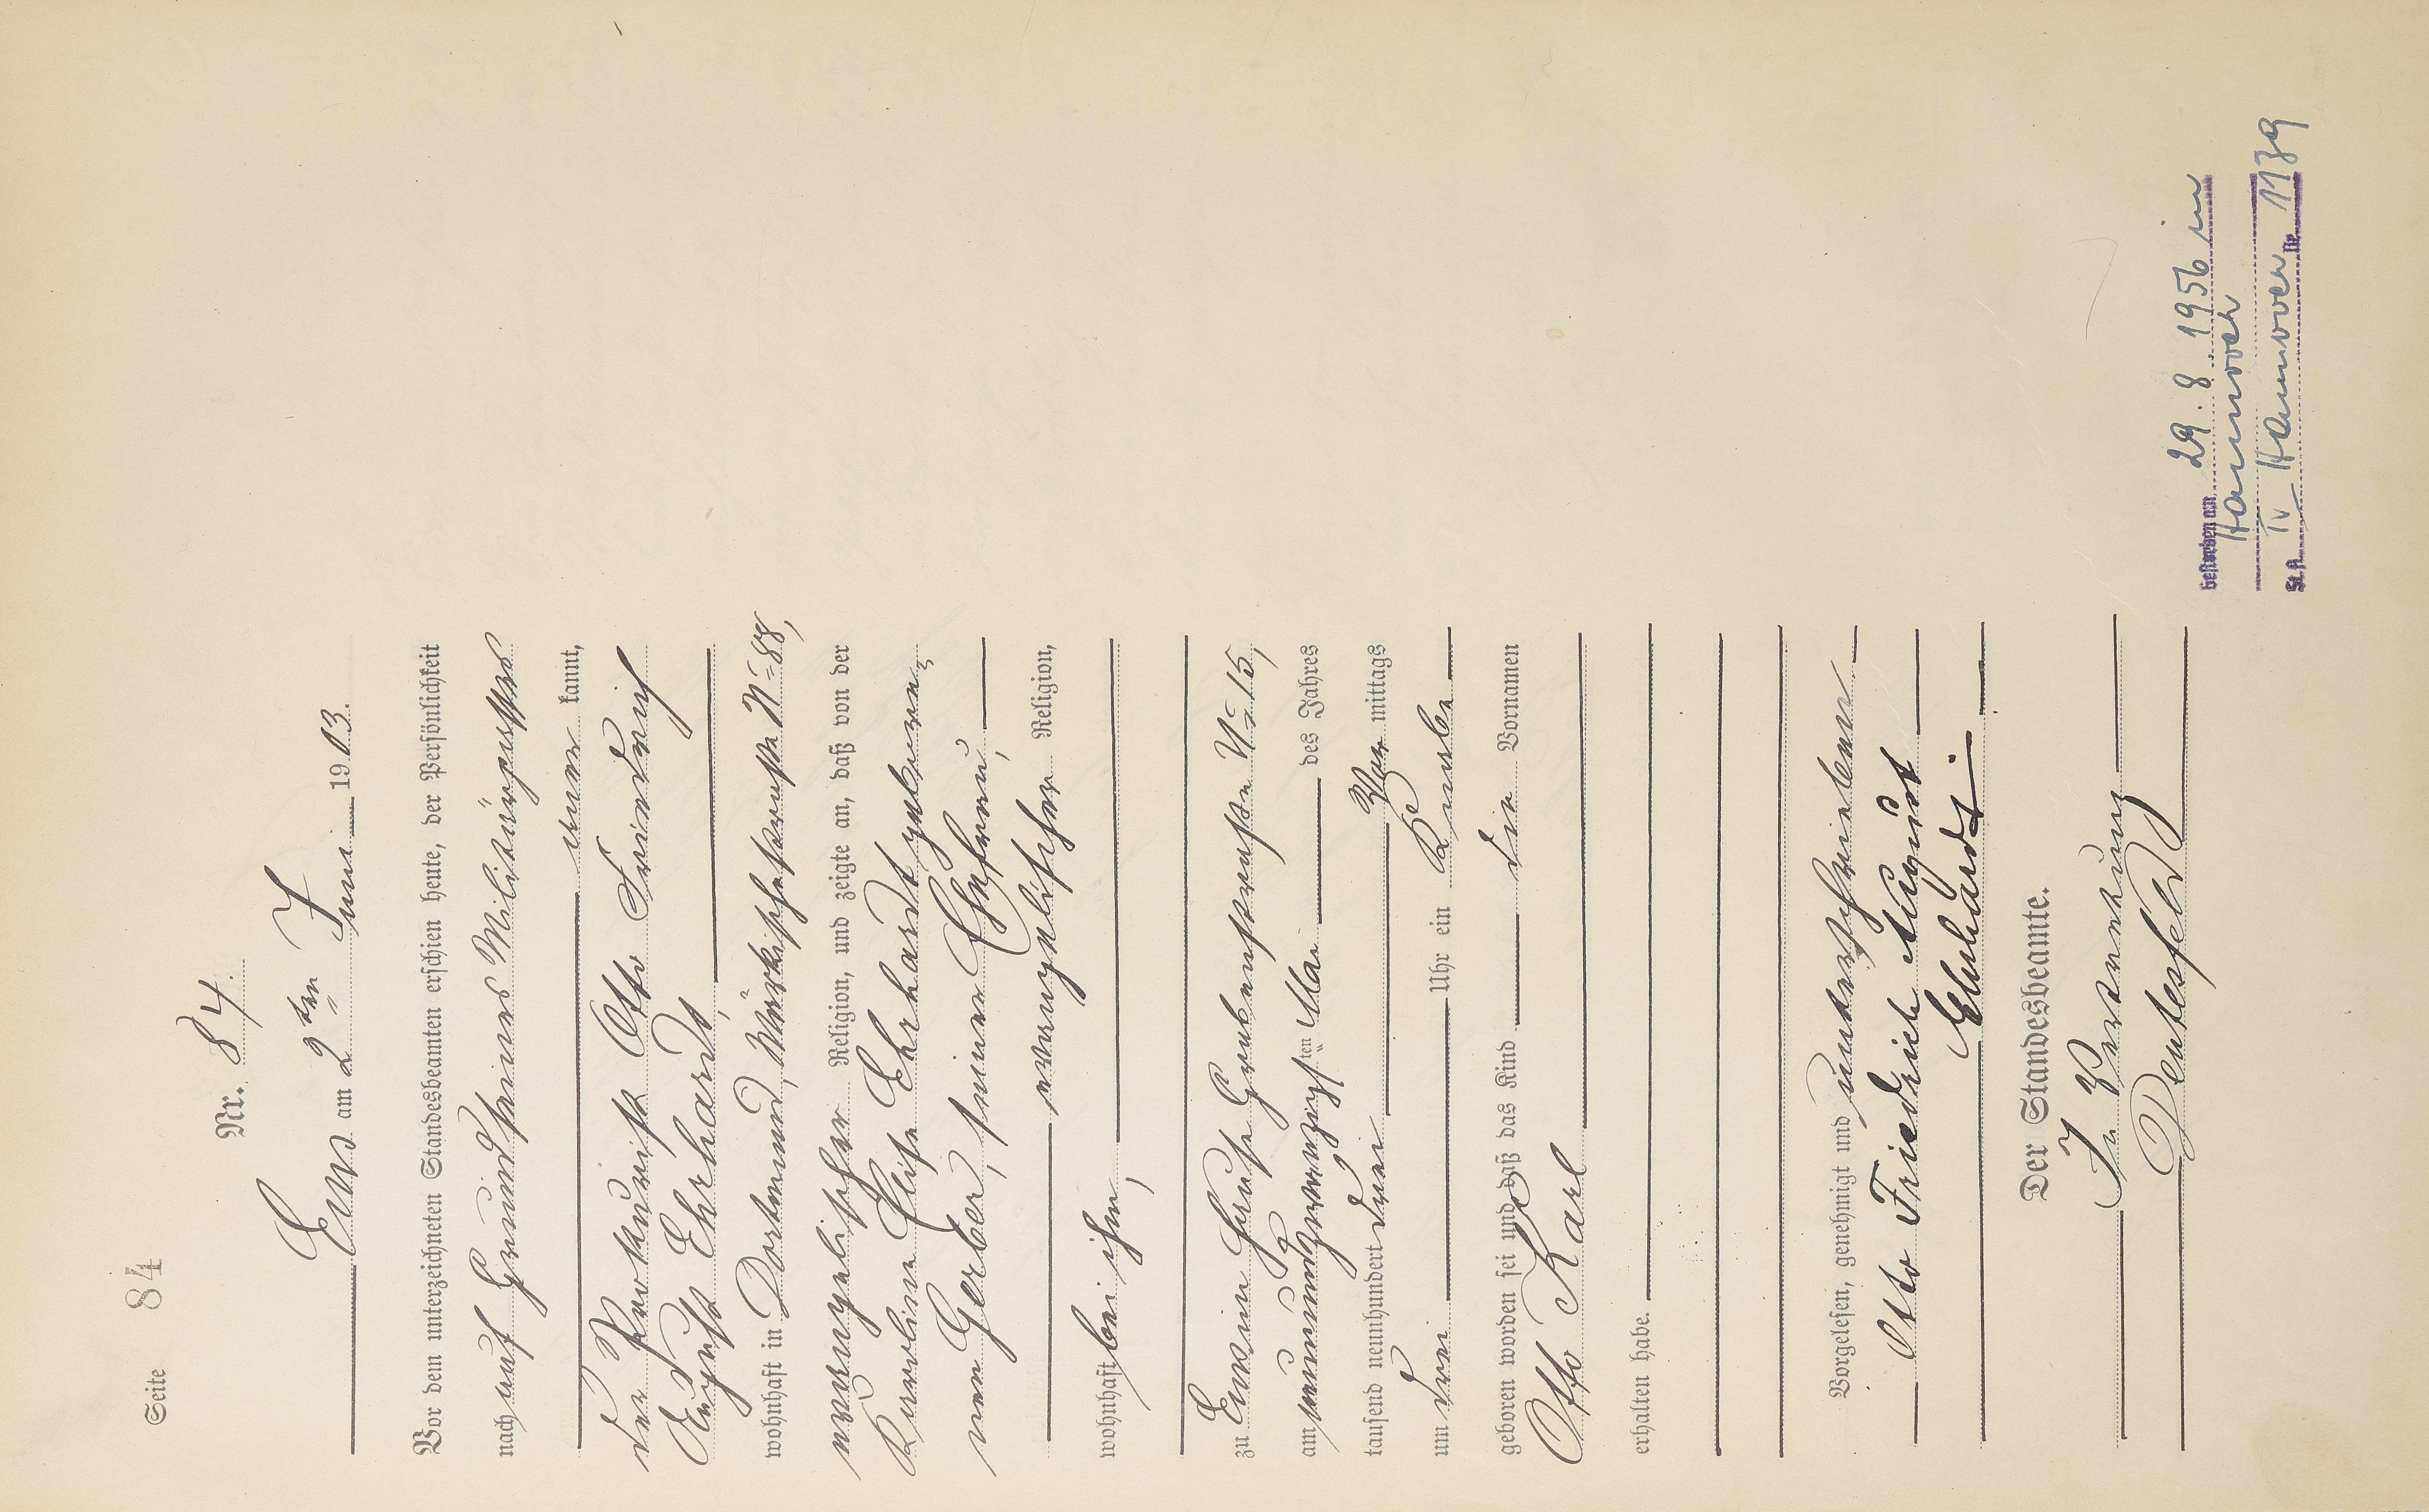 Seite 84
Nr. 84.
Ems am 2ten Juni 1903.
Vor dem unterzeichneten Standesbeamten erschien heute, der Persönlichkeit
nach auf Grund seines Militärpasses
anerkannt,
der Prokurist Otto Friedrich
August Ehrhardt,
wohnhaft in Dortmund, Märkischestraße No 88,
evangelischer Religion, und zeigte an, daß von der
Karoline Elise Ehrhardt geborenen
Gerber, seiner Ehefrau,
evangelischer Religion,
wohnhaft bei ihm,
zu Ems im Hause Grabenstraße No 15,
am neunundzwanzigsten Mai des Jahres
tausend neunhundert drei Vor mittags
um drei Uhr ein Knabe
geboren worden sei und daß das Kind die Vornamen
Otto Karl
erhalten habe.
Vorgelesen, genehmigt und unterschrieben
Otto Friedrich August
Ehrhardt
Der Standesbeamte.
In Vertretung
gestorben am 29.8.1956 in
Hannover
St.A. IV Hannover Nr. 1139